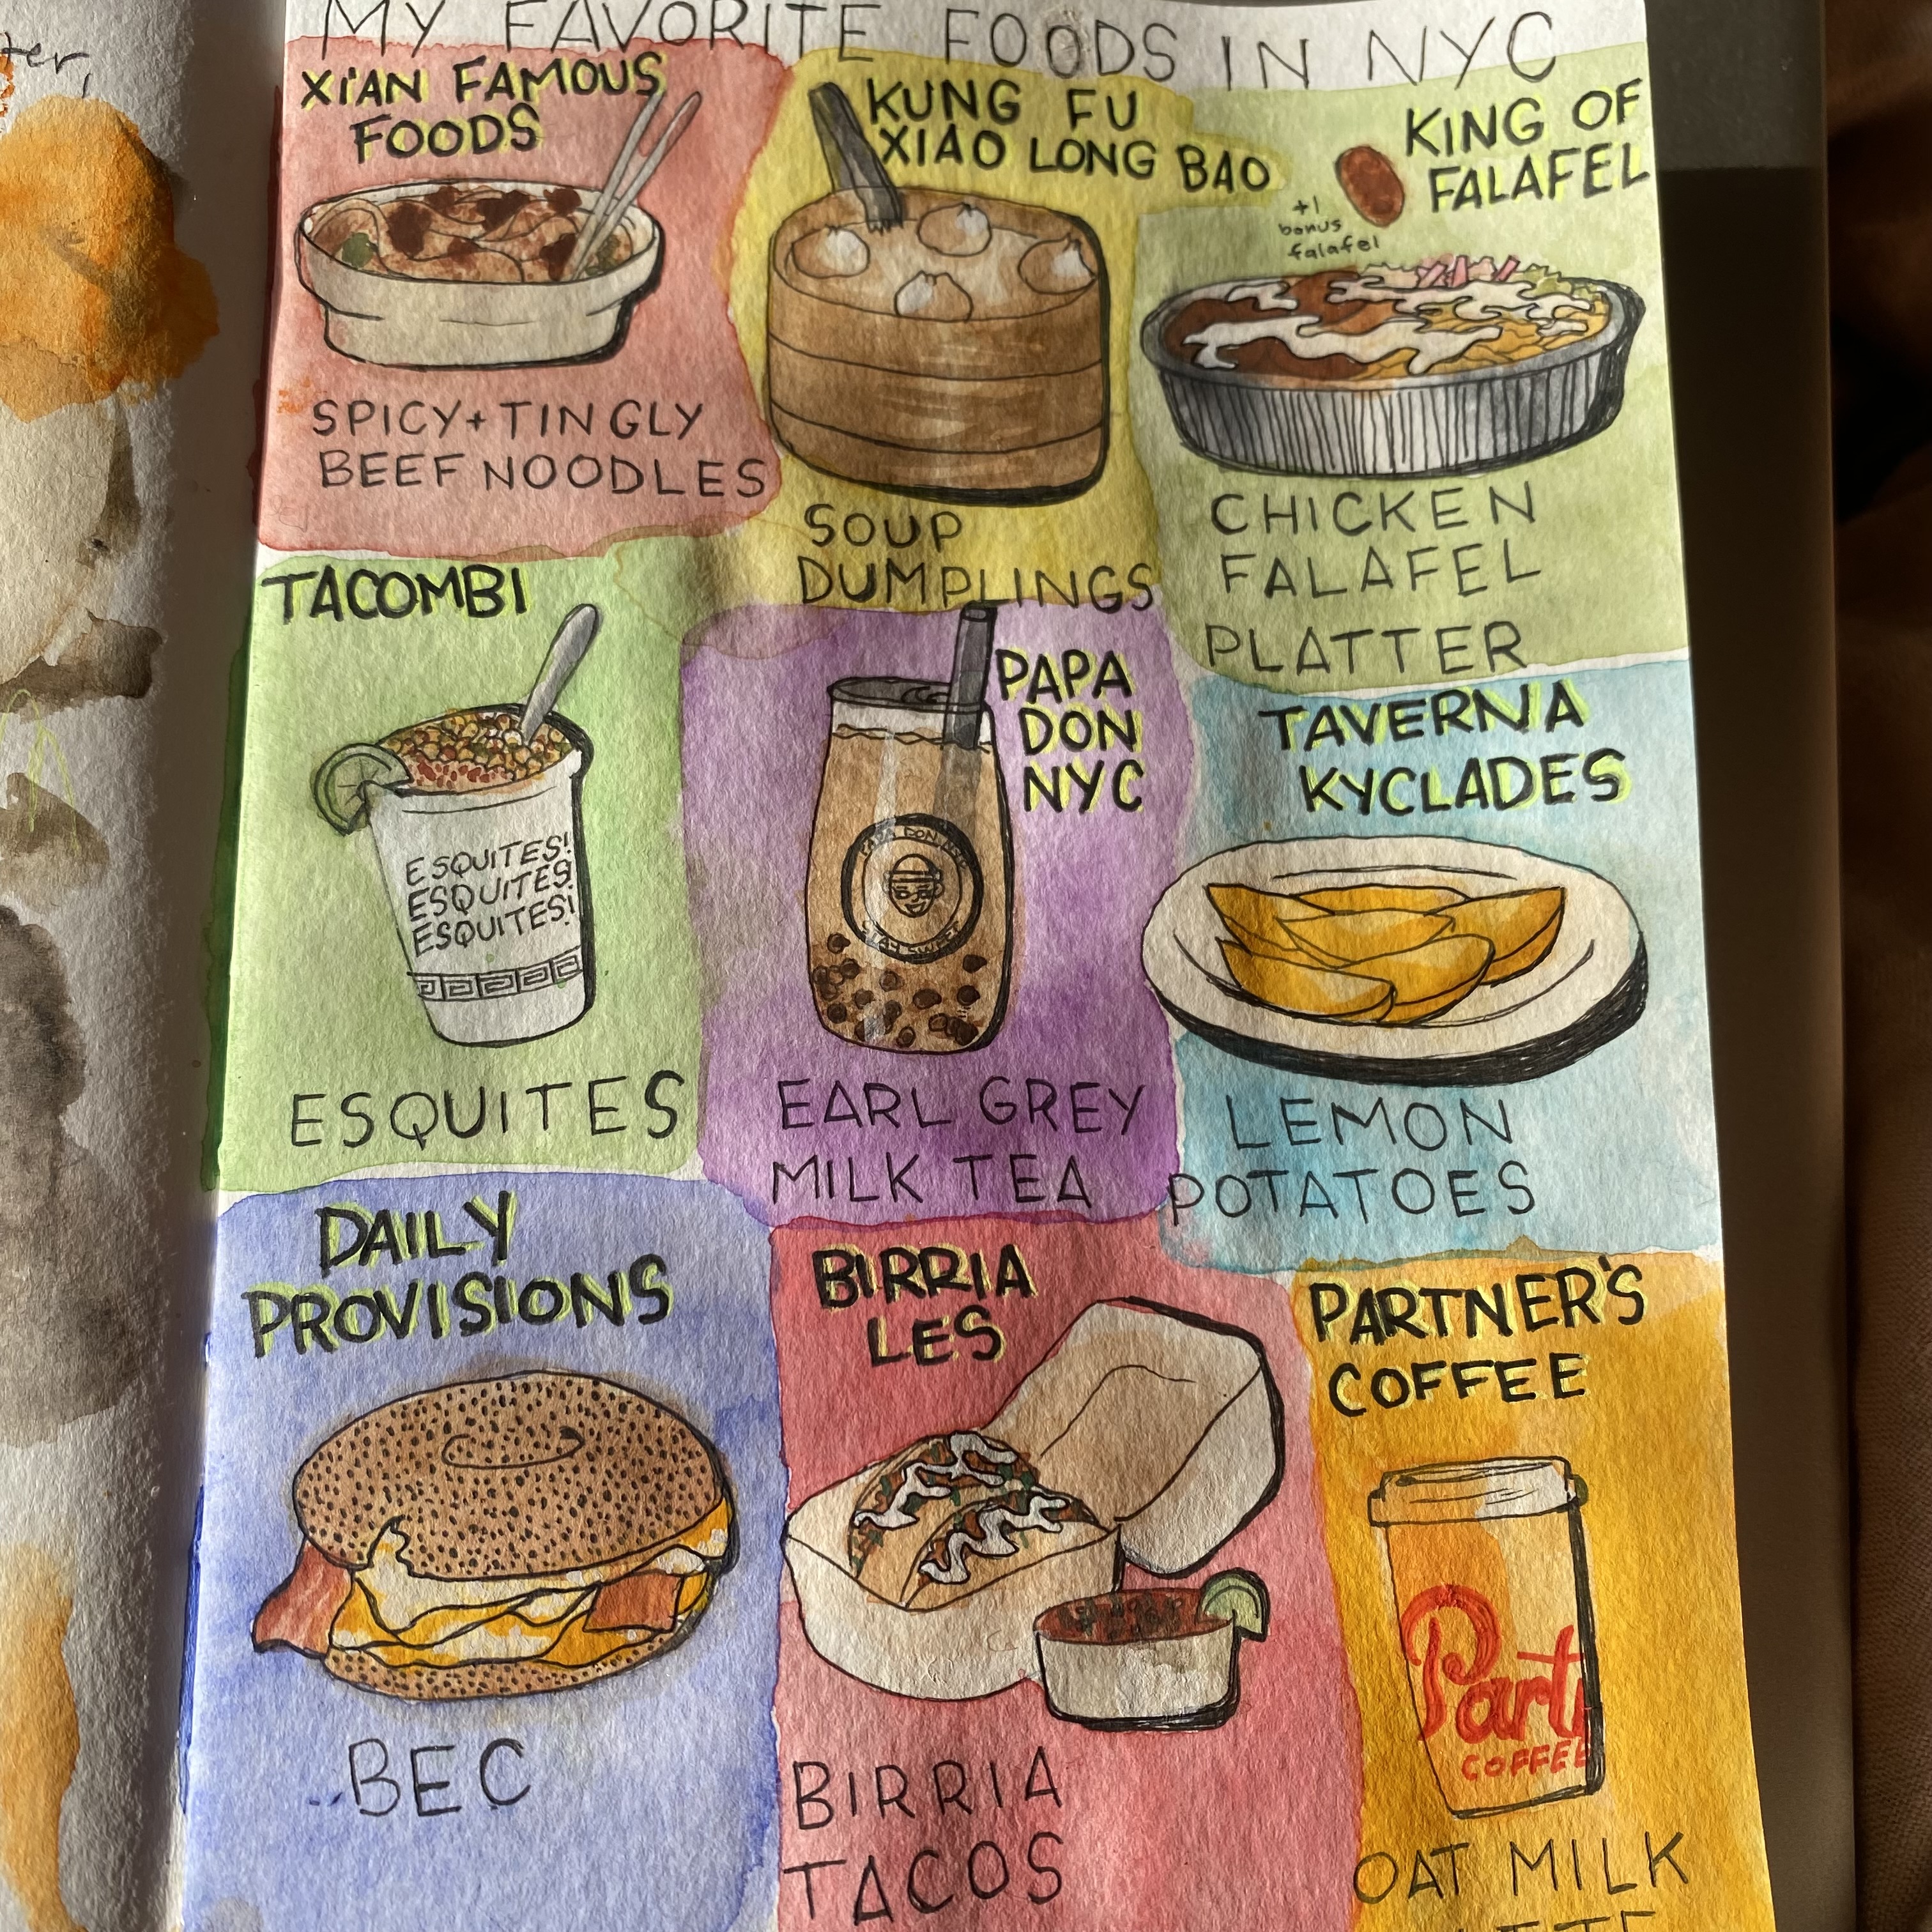 MY FAVORITE FOODS IN NYC
XI'AN FAMOUS
FOODS
SPICY + TINGLY
BEEF NOODLES
KUNG FU
XIAO LONG BAO
SOUP
DUMPLINGS
KING OF
FALAFEL
+1
bonus
falafel
CHICKEN
FALAFEL
PLATTER
TACOMBI
ESQUITES!
ESQUITES!
ESQUITES!
ESQUITES
PAPA
DON
NYC
PAPA DON
STAY SWEET
EARL GREY
MILK TEA
TAVERNA
KYCLADES
LEMON
POTATOES
DAILY
PROVISIONS
BEC
BIRRIA
LES
BIRRIA
TACOS
PARTNER'S
COFFEE
Part
COFFEE
OAT MILK